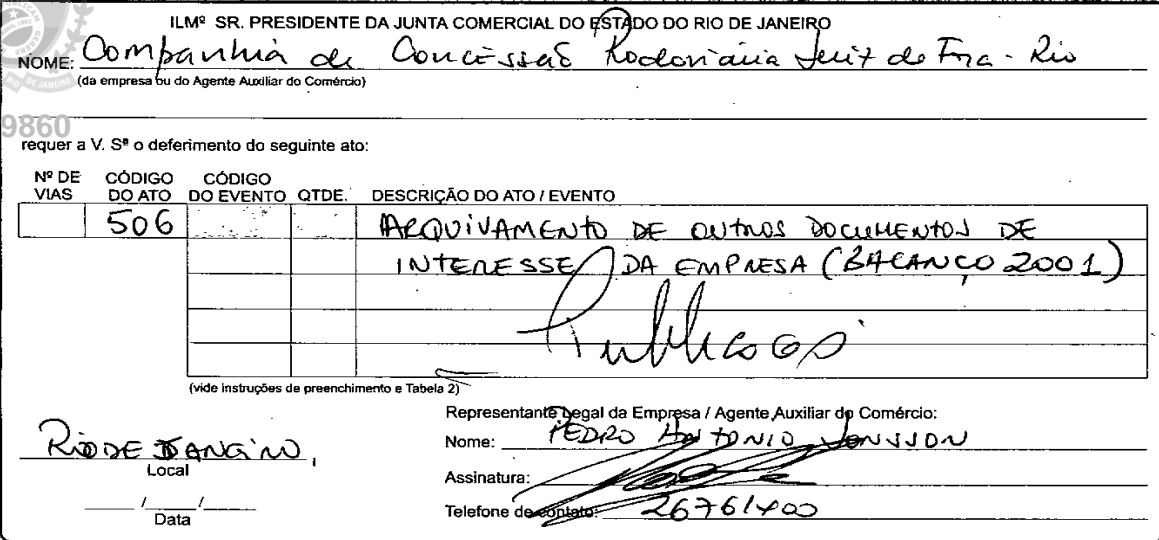 ILMº SR. PRESIDENTE DA JUNTA COMERCIAL DO ESTADO DO RIO DE JANEIRO
NOME: Companhia de Concessão Rodoviária Juiz de Fora - Rio
(da empresa ou do Agente Auxiliar do Comércio)
9860
requer a V. Sª o deferimento do seguinte ato:
Nº DE VIAS CÓDIGO DO ATO CÓDIGO DO EVENTO QTDE. DESCRIÇÃO DO ATO / EVENTO
506 ARQUIVAMENTO DE OUTROS DOCUMENTOS DE
INTERESSE DA EMPRESA (BALANÇO 2001)
(vide instruções de preenchimento e Tabela 2)
Representante Legal da Empresa / Agente Auxiliar do Comércio:
Nome: PEDRO ANTONIO JONSSON
RIO DE JANEIRO,
Local
Assinatura:
Telefone de contato: 26761400
__/__/__
Data